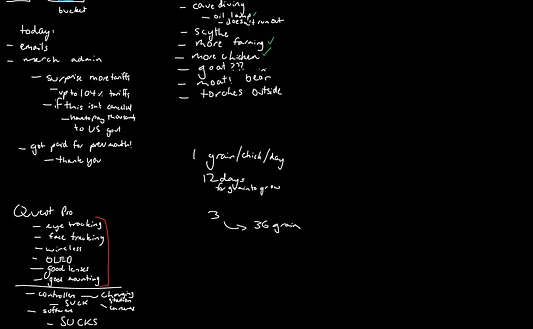 bucket
today:
- emails
- merch admin
- surprise more tariffs
- up to 104% tariffs
- if this isnt canceled
- have to pay thousant
to US govt
- got paid for prev month!
- thank you
- cave diving
- oil lamp ✓
- doesn't run out
- scythe
- more farming ✓
- more chicken ✓
- goat ???
- moat! bear
- torches outside
1 grain/chick/day
12 days
for grain to grow
3
↳ 36 grain
Quest Pro
- eye tracking
- face tracking
- wireless
- OLED
- good lenses
- good mounting
- controllers - charging
station
- cameras
- SUCK
- software
- SUCKS